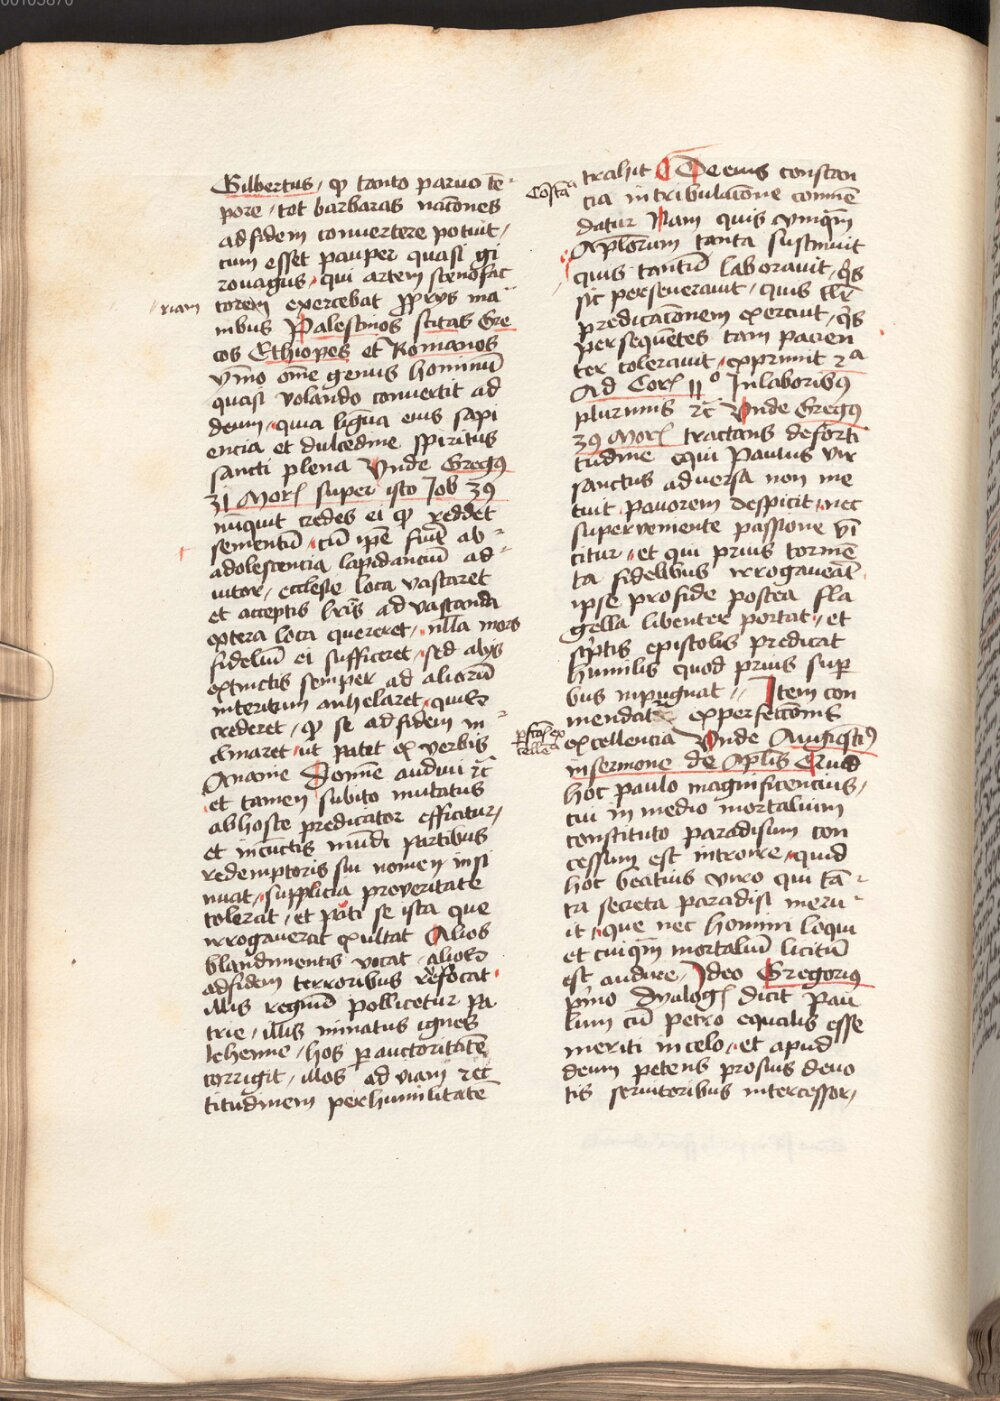 Gilbertus / ꝙ tanto paruo tē
pore / tot barbaras nacōnes
ad fidem conuertere potuit /
cum esset pauper quasi gi
rouagus / qui artem scenofac
/ riam
torem exercebat ꝓprijs ma
nibus Palestinos scitas Gre
cos Ethiopes et Romanos
ymo ome genus hominū
quasi volando conuertit ad
deum / quia ligwa eius sapi
encia et dulcedine spiritus
sancti plena Vnde Gregꝰ
31 Mor super isto Job 39
nūquit credes ei ꝙ reddet
sementū / cū ipē fuīt ab
adolescencia lapidanciū ad
iutor / ecclesie loca vastaret
et acceptis lrīs ad vastanda
cetera loca quereret / nlla mors
fideliū ei sufficeret / sed alijs
extinctis semper ad aliorū
interitum anhelaret / quis
crederet / ꝙ se ad fidem in
clinaret / ut patet ex verbis
Ananie Domīe audiui rc̄
et tamen subito mutatus
ab hoste predicator efficitur /
et in cūctis mūdi partibus
redemptoris sui nomen insi
nuat / supplicia pro veritate
tolerat / et pati se ista que
irrogauerat exultat Alios
blandimentis vocat alios
ad fidem terroribus refocat
illis regnū pollicetur pa
trie / illis minatus ignes
iehenne / hos ꝑ auctoritatē
corrigit / illos ad viam rec
titudinem per humilitatē
trahit De eius constan
Costaᵃ
cia in tribulacōne cōmē
datur Nam quis vnuqm̄
Aplorum tanta sustinuit
quis tantū laborauit / qs
sic perseuerauit / quis
predicacōnem exercuit / qs
persequētes tam pacien
ter tolerauit / exprimit 2ᵃ
Ad Cor 11° In laboribꝰ
plurimis rc̄ Vnde Gregꝰ
39 Mor tractans de forti
tudine equi Paulus vir
sanctus aduersa non me
tuit pauorem despicit / nec
superueniente passione vī
citur / et qui prius tormē
ta fidelibus irrogaueāt
ipse pro fide postea fla
gella libenter portat / et
scptis epistolis predicat
humilis quod prius suꝑ
bus inpugnat // Item con
mendatur ex perfeccōnis
excellencia Vnde Augustīꝰ
in sermone de Aplis Quid
hoc paulo magnificencius /
cui in medio mortalium
constituto paradisum con
cessum est introire / quid
hoc beatius viro qui tā
ta secreta paradisi meru
it / que nec homini loqui
et cuiqm̄ mortaliū licitū
est audire / Ideo Gregorius
pīmo dyalog dicit Pau
lum cū petro equalis esse
meriti in celo / et apud
deum petens prosius deuo
tis seruitoribus intercessor /